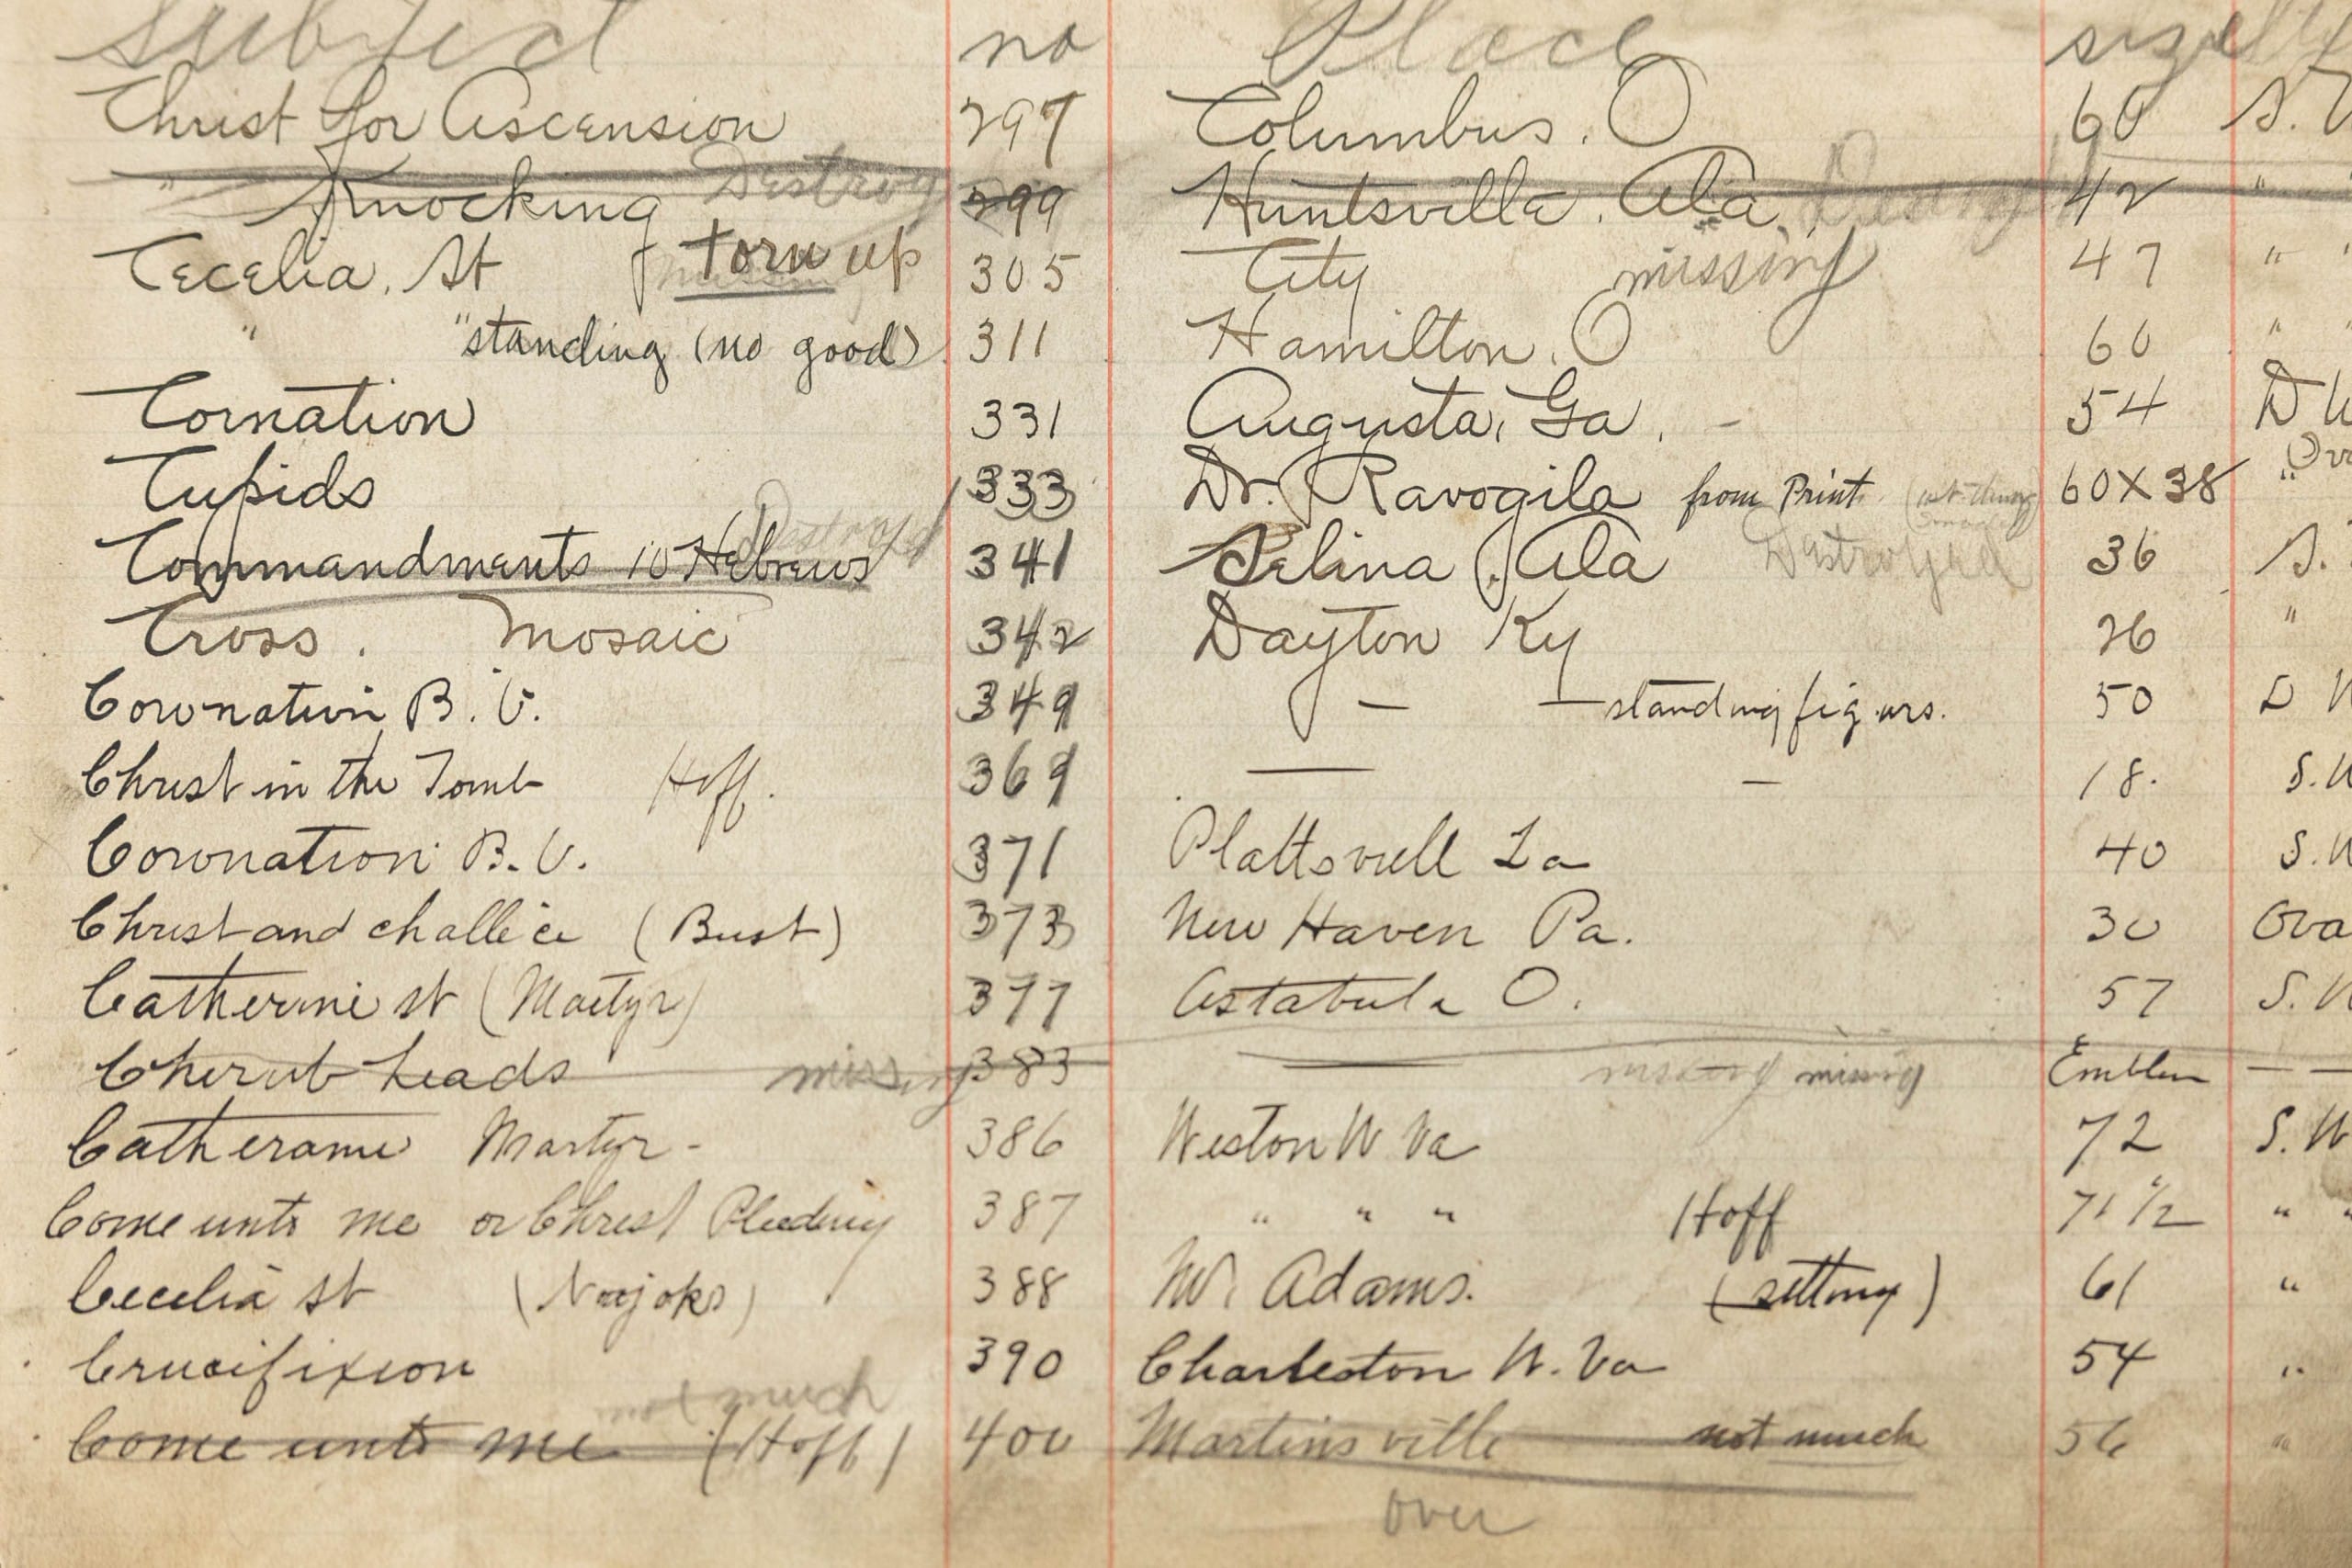 Subject no Place size
Christ for Ascension 297 Columbus. O 60 S.
" Knocking Destroy 299 Huntsville. Ala. 42 "
Cecelia. St torn up 305 City missing 47 " "
" "standing (no good) 311 Hamilton. O 60 "
Cornation 331 Augusta, Ga. - 54 D
Cupids 333 Dr. Ravogila from Print 60X38 "
Commandments 10 Hebrews Destroyed 341 Selina, Ala Destroyed 36 S.
Cross. Mosaic 342 Dayton Ky 26 "
Coronation B.V. 349 — — standing figurs. 50 D
Christ in the Tomb Hoff. 369 — — 18. S.W
Coronation B.V. 371 Plattsvill La 40 S.W
Christ and challice (Bust) 373 New Haven Pa. 30 Ova
Catherine st (Martyr) 377 Astabula O. 57 S.W
Cherub heads missing 383 — missing missing Emblem — —
Catherame Martyr - 386 Weston W Va 72 S.W
Come unto me or Christ Pleeding 387 " " " Hoff 71 1/2 " "
Cecelia st (Naujoks) 388 Mt. Adams. (sitting) 61 "
Crucifixion 390 Charleston W. Va 54 "
not much
Come unto me (Hoff) 400 Martinsville not much 56 "
over